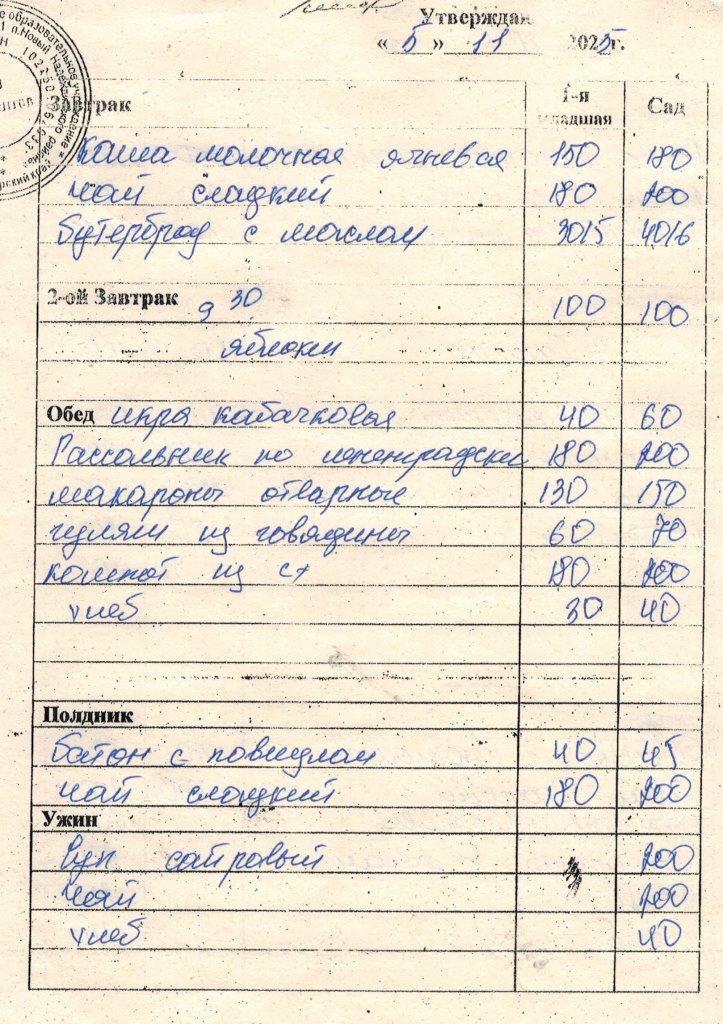 Утверждаю
« 5 » 11 2025г.
Завтрак 1-я младшая Сад
Каша молочная ячневая 150 180
чай сладкий 180 200
Бутерброд с маслом 30/5 40/6
2-ой Завтрак 9 30 100 100
яблоки
Обед икра кабачковая 40 60
Рассольник по ленинградски 180 200
макароны отварные 130 150
гуляш из говядины 60 70
компот из с/х 180 200
хлеб 30 40
Полдник
Батон с повидлом 40 45
чай сладкий 180 200
Ужин
Суп сайровый 200
Чай 200
хлеб 40